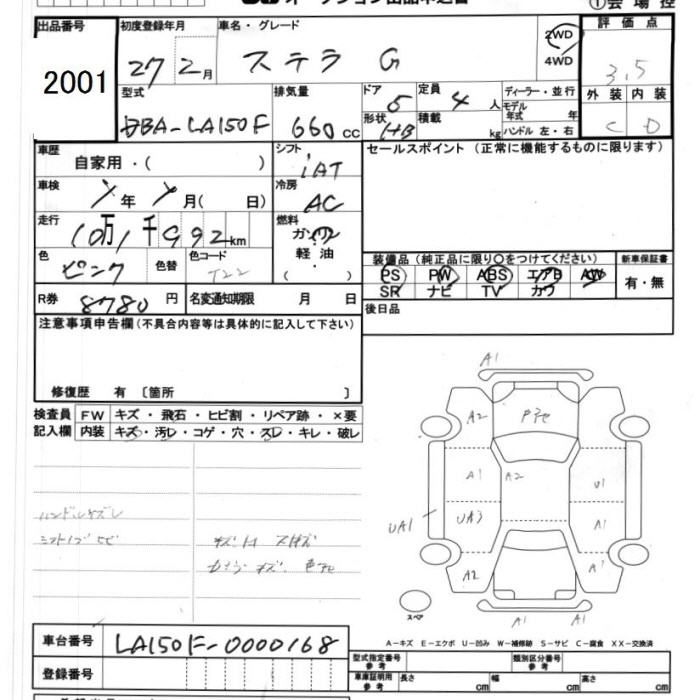 オークション出品申込書 ①会場控
出品番号 初度登録年月 車名・グレード 2WD 評価点
2001 27 2月 ステラ G 4WD 3.5
型式 排気量 ドア 5 定員 4人 ディーラー・並行 外装 内装
DBA-LA150F 660cc 形状 H/B 積載 kg モデル年式 年 C D
ハンドル 左・右
車歴 シフト セールスポイント(正常に機能するものに限ります)
自家用・( ) iAT
車検 年 月( 日) 冷房 AC
走行 10万1千992km 燃料 ガソリン
色 色替 色コード 軽油・
ピンク T22 ( )
装備品(純正品に限り○をつけてください) 新車保証書
PS PW ABS エアB AW 有・無
SR ナビ TV カワ
R券 8780円 名変通知期限 月 日 後日品
注意事項申告欄(不具合内容等は具体的に記入して下さい)
修復歴 有 〔箇所 〕
検査員 FW キズ・飛石・ヒビ割・リペア跡・×要
記入欄 内装 キズ・汚レ・コゲ・穴・スレ・キレ・破レ
ハンドルキズレ
シフトノブ
キズ
A1
A2
A1 A2 U1
UA1 UA3 A1
A2 A1
スペア A1 A1
A-キズ E-エクボ U-凹み W-補修跡 S-サビ C-腐食 XX-交換済
車台番号 LA150F-0000168
型式指定番号 参考 類別区分番号 参考
登録番号 車庫証明用 参考 長さ cm 幅 cm 高さ cm